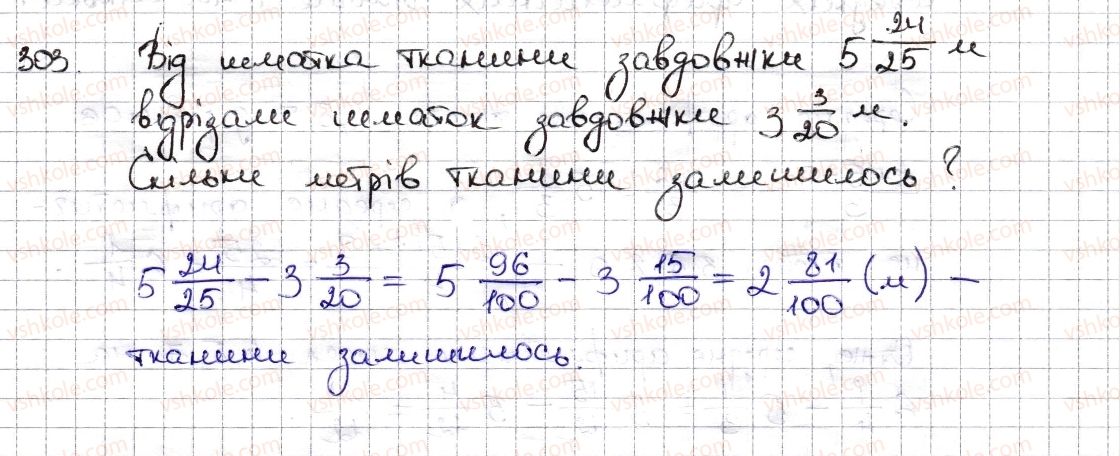 303. Від шматка тканини завдовжки 5 24/25 м
відрізали шматок завдовжки 3 3/20 м.
Скільки метрів тканини залишилось?
5 24/25 - 3 3/20 = 5 96/100 - 3 15/100 = 2 81/100 (м) -
тканини залишилось.